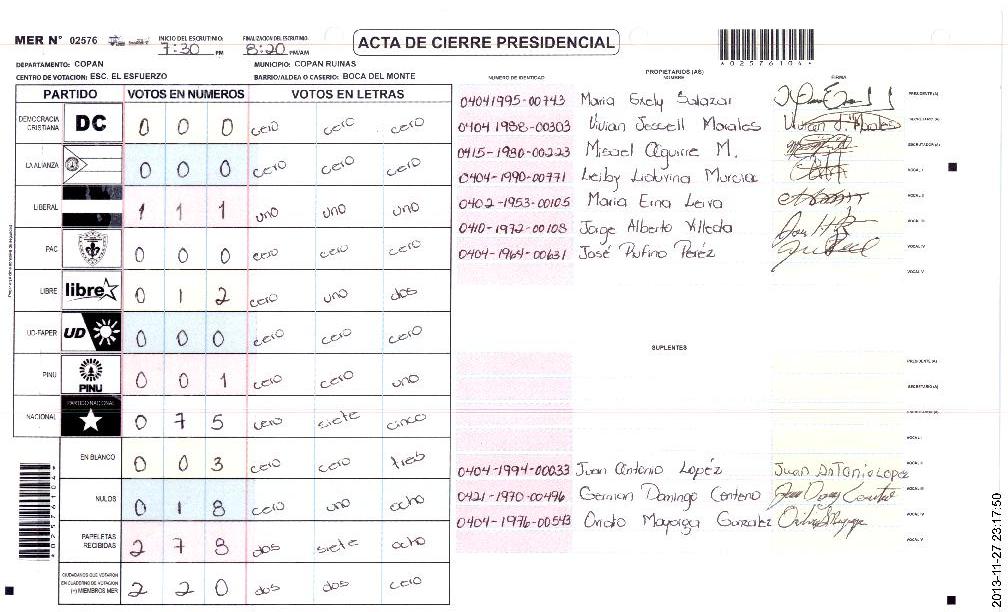 MER N° 02576
INICIO DEL ESCRUTINIO: 7:30 PM
FINALIZACION DEL ESCRUTINIO: 8:20 PM/AM
ACTA DE CIERRE PRESIDENCIAL
*02576104*
DEPARTAMENTO: COPAN
MUNICIPIO: COPAN RUINAS
CENTRO DE VOTACION: ESC. EL ESFUERZO
BARRIO/ALDEA O CASERIO: BOCA DEL MONTE
PARTIDO VOTOS EN NÚMEROS VOTOS EN LETRAS
DEMOCRACIA CRISTIANA DC 0 0 0 cero cero cero
LA ALIANZA 0 0 0 cero cero cero
LIBERAL 1 1 1 uno uno uno
PAC 0 0 0 cero cero cero
LIBRE libre 0 1 2 cero uno dos
UD-FAPER UD 0 0 0 cero cero cero
PINU PINU 0 0 1 cero cero uno
NACIONAL PARTIDO NACIONAL 0 7 5 cero siete cinco
EN BLANCO 0 0 3 cero cero tres
NULOS 0 1 8 cero uno ocho
PAPELETAS RECIBIDAS 2 7 8 dos siete ocho
CIUDADANOS QUE VOTARON EN CUADERNO DE VOTACION (+) MIEMBROS MER 2 2 0 dos dos cero
*02576104*
PROPIETARIOS (AS)
NUMERO DE IDENTIDAD NOMBRE FIRMA
0404 1995-00743 Maria Exely Salazar PRESIDENTE (A)
0404 1988-00303 Vivian Jessell Morales Vivian J. Morales SECRETARIO (A)
0415-1980-00223 Misael Aguirre M. ESCRUTADOR (A)
0404-1990-00771 Leiby Liduvina Murcia VOCAL I
0402-1953-00105 Maria Erna Leiva VOCAL II
0410-1972-00108 Jorge Alberto Villeda VOCAL III
0404-1964-00631 José Rufino Peréz VOCAL IV
VOCAL V
SUPLENTES
PRESIDENTE (A)
SECRETARIO (A)
ESCRUTADOR (A)
VOCAL I
0404-1994-00033 Juan Antonio Lopéz Juan Antonio Lopez VOCAL II
0421-1970-00496 German Domingo Centeno VOCAL III
0404-1976-00543 Mayorga Gonzalez VOCAL IV
VOCAL V
2013-11-27 23:17:50